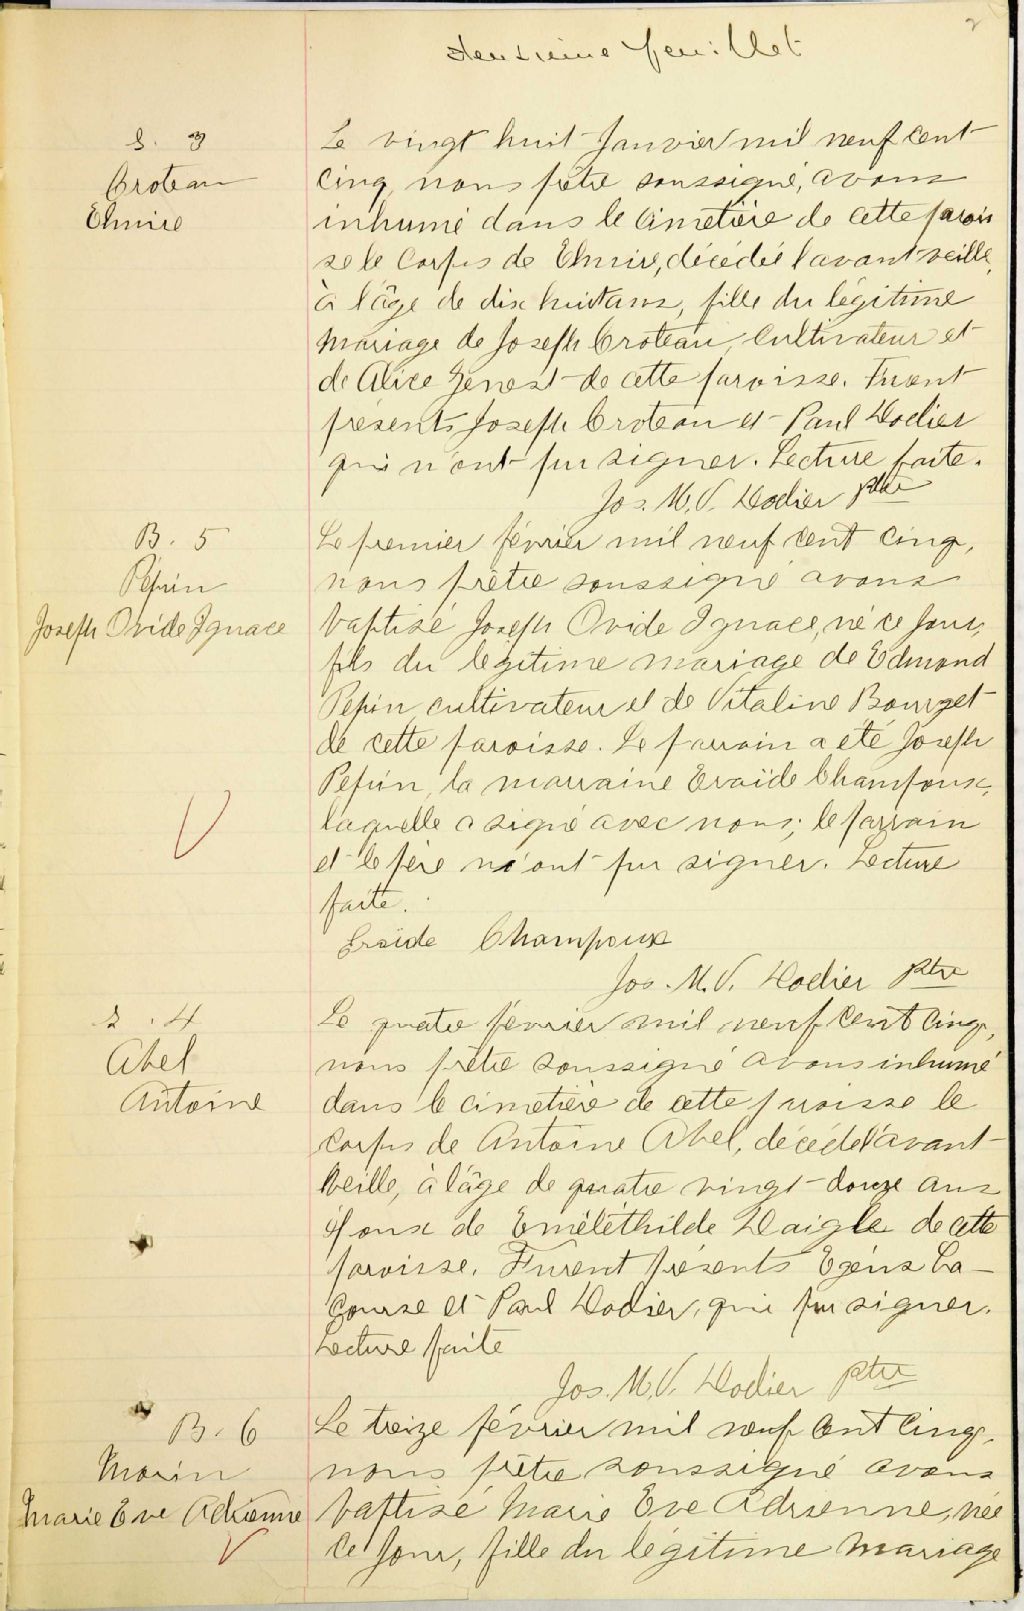 2
deuxième feuillet
S. 3
Croteau
Elmire
Le vingt huit Janvier mil neuf cent
cinq, nous prêtre soussigné, avons
inhumé dans le cimetière de cette parois
se le corps de Elmire, décédée l'avant veille,
à l'âge de dix huit ans, fille du légitime
mariage de Joseph Croteau, cultivateur et
de Alice Genest de cette paroisse. Furent
présents Joseph Croteau et Paul Dodier
qui n'ont pu signer. Lecture faite.
Jos. M. V. Dodier ptre
B. 5
Pépin
Joseph Ovide Ignace
Le premier février mil neuf cent cinq,
nous prêtre soussigné avons
baptisé Joseph Ovide Ignace, né ce jour,
fils du légitime mariage de Edmond
Pepin, cultivateur et de Vitaline Bourget
de cette paroisse. Le parrain a été Joseph
Pepin, la marraine Eraïde Champoux,
laquelle a signé avec nous; le parrain
et le père n'ont pu signer. Lecture
faite.
Eraïde Champoux
Jos. M. V. Dodier Ptre
S. 4
Abel
Antoine
Le quatre février mil neuf cent cinq,
nous prêtre soussigné avons inhumé
dans le cimetière de cette paroisse le
corps de Antoine Abel, décédé l'avant
veille, à l'âge de quatre vingt-douze ans
époux de Eméléthilde Daigle de cette
paroisse. Furent présents La-
course et Paul Dodier, qui pu signer.
Lecture faite
Jos. M. V. Dodier ptre
B. 6
Morin
Marie Eve Adrienne
Le treize février mil neuf cent cinq,
nous prêtre soussigné avons
baptisé Marie Eve Adrienne, née
ce jour, fille du légitime mariage